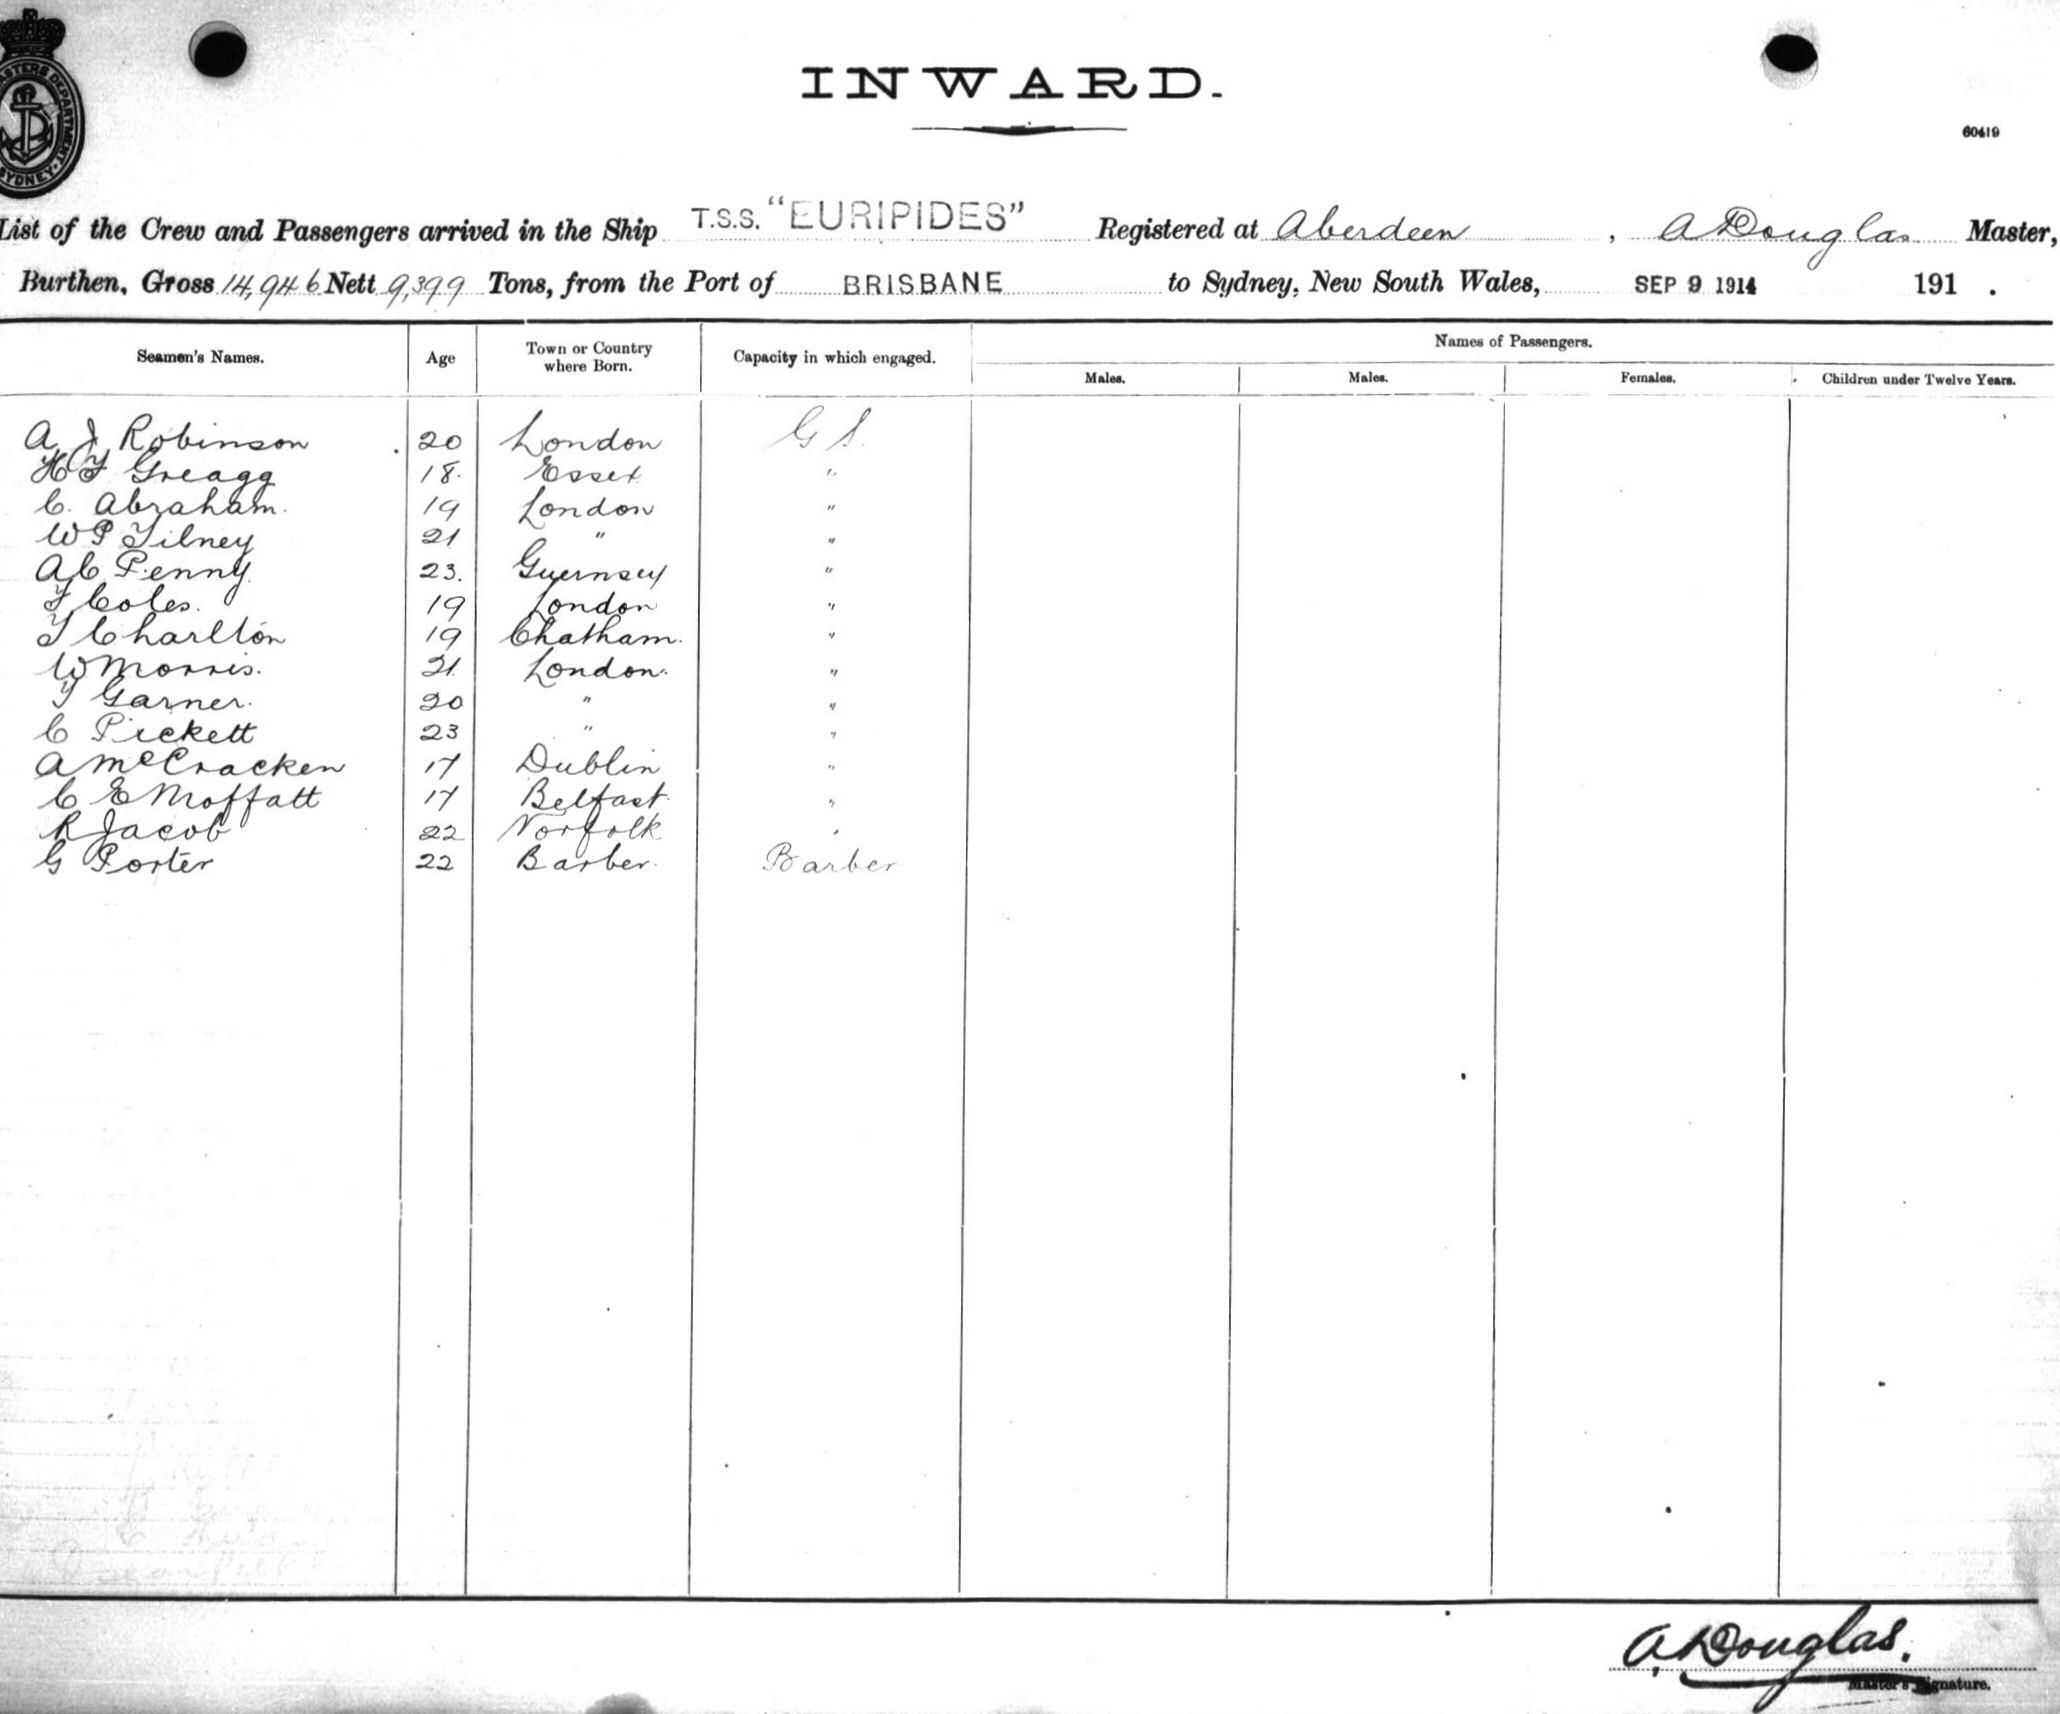 MASTERS DEPARTMENT
SYDNEY.
INWARD.
60419
List of the Crew and Passengers arrived in the Ship T.S.S. "EURIPIDES" Registered at Aberdeen, A Douglas Master,
Burthen, Gross 14,946 Nett 9,399 Tons, from the Port of BRISBANE to Sydney, New South Wales, SEP 9 1914 191 .
Seamen's Names. Age Town or Country where Born. Capacity in which engaged. Names of Passengers.
Males. Males. Females. Children under Twelve Years.
A J Robinson 20 London G S.
H F Greagg 18. Essex "
C. Abraham. 19 London "
W P Tilney 21 " "
A C Penny 23. Guernsey "
F Coles. 19 London "
T Charlton 19 Chatham. "
W Morris. 21 London. "
T Garner. 20 " "
C Pickett 23 " "
A McCracken 17 Dublin "
C E Moffatt 17 Belfast. "
R Jacob 22 Norfolk "
G Porter 22 Barber. Barber
A. Douglas.
Master's Signature.